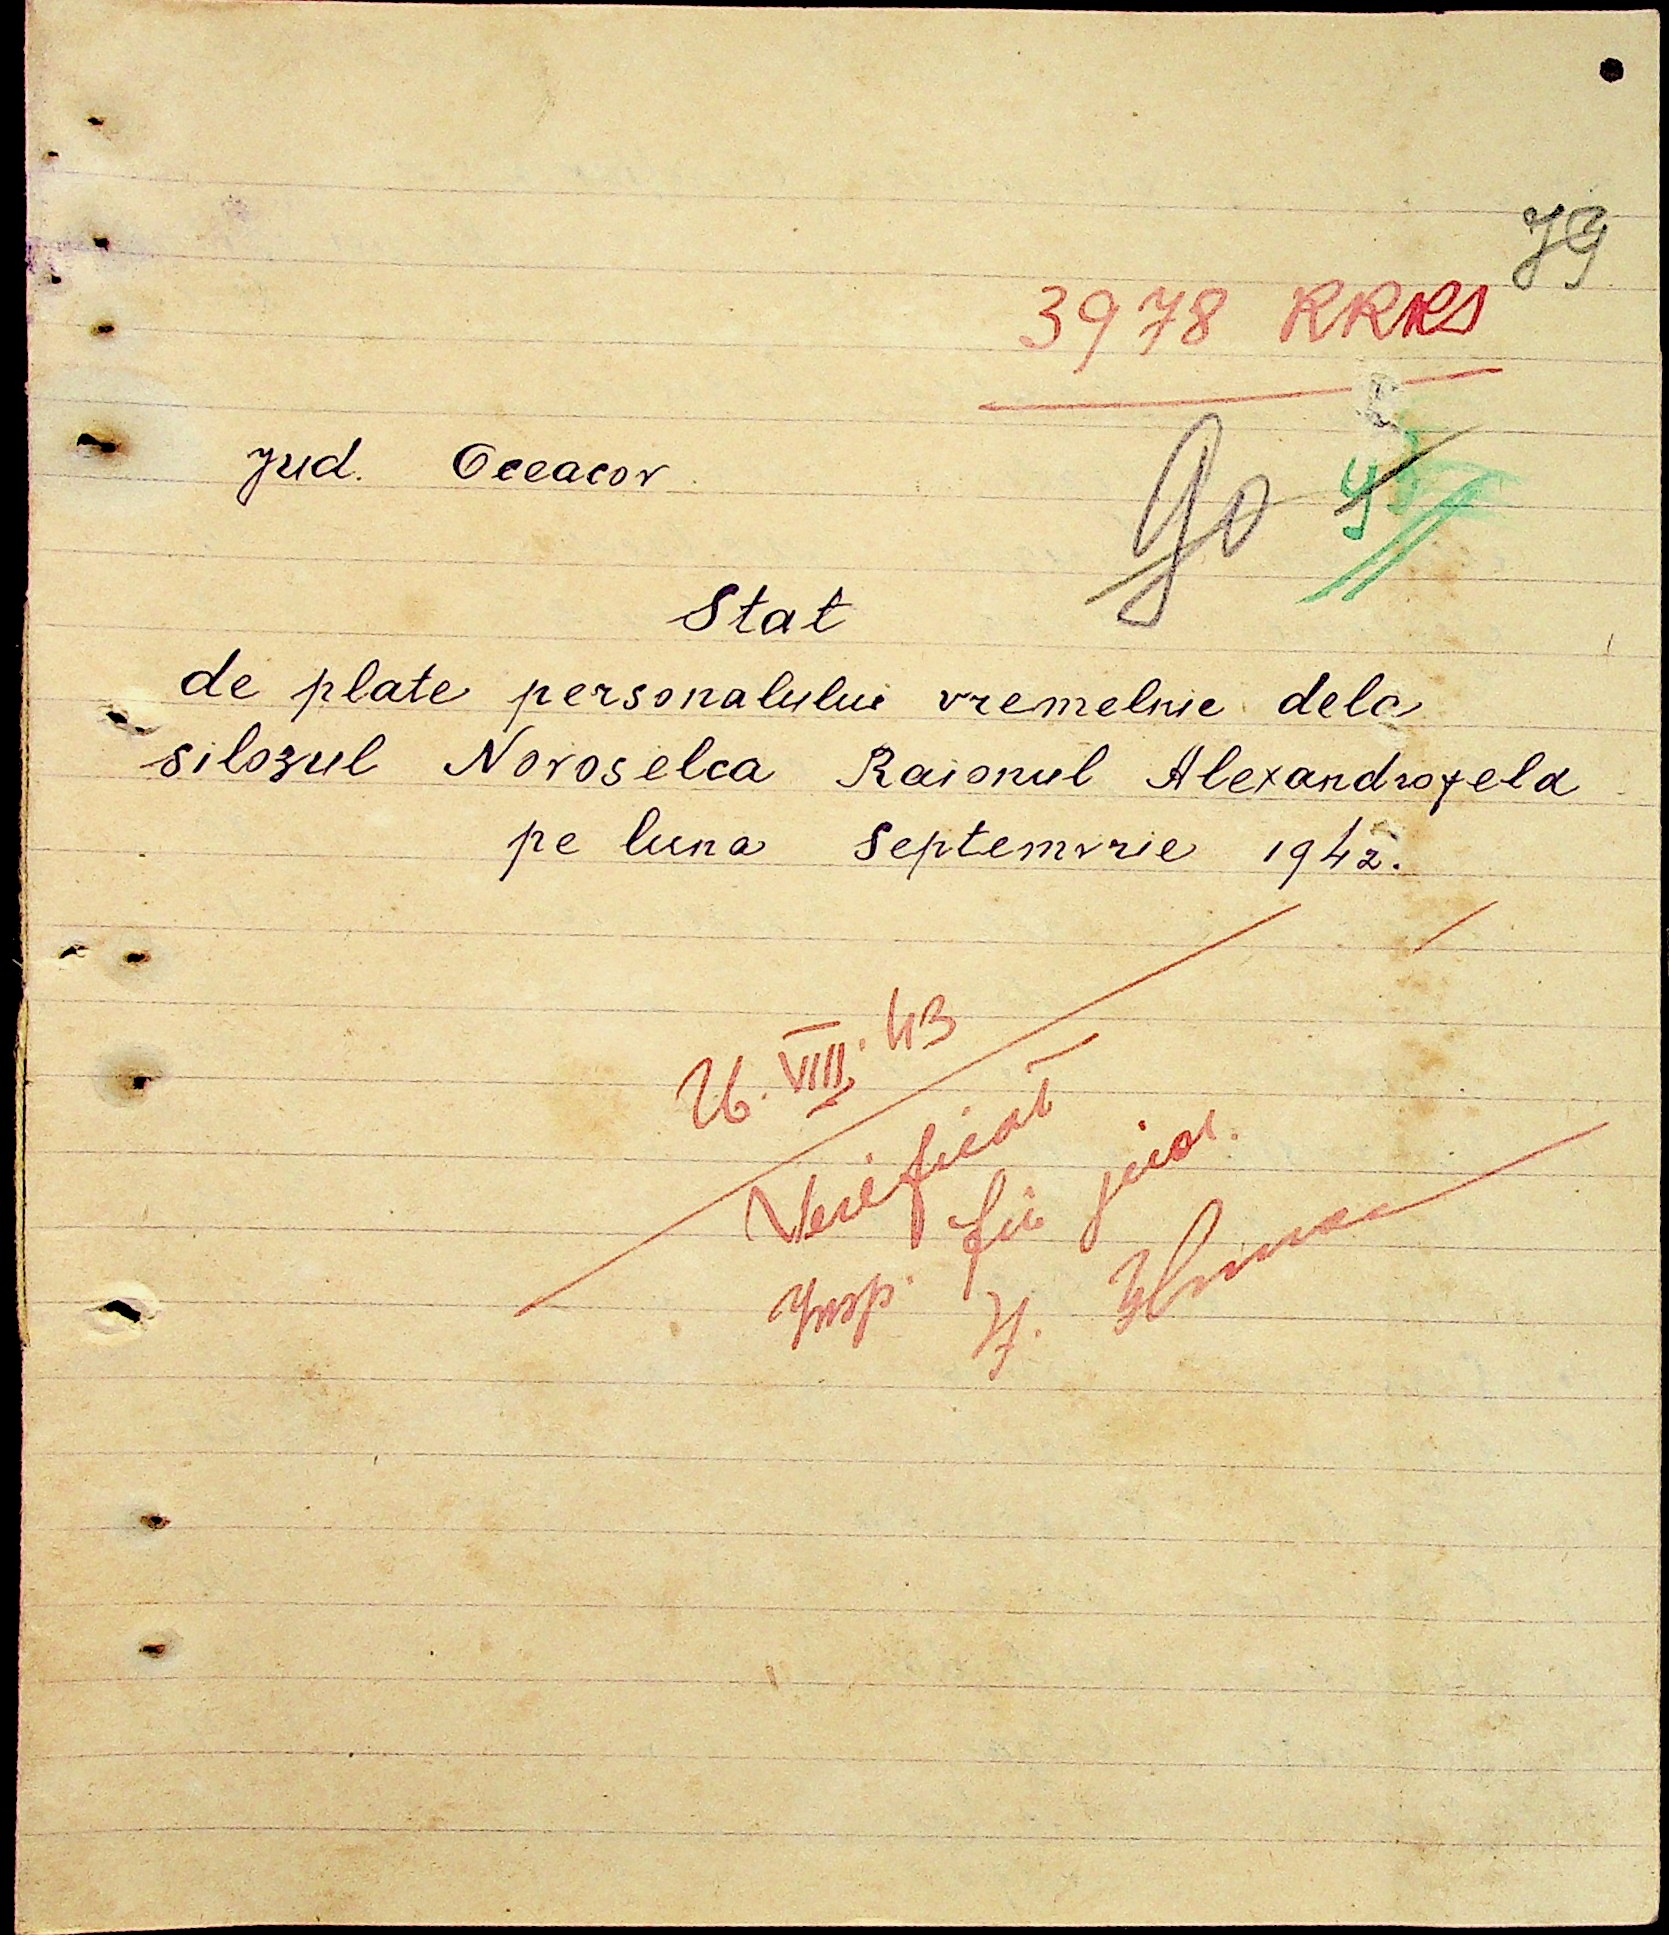 79
3978 RRRS
90
Jud. Oceacov
Stat
de plate personalului vremelnic dela
silozul Novoselca Raionul Alexandrofeld
pe luna Septemvrie 1942.
26. VIII. 43
Verificat
Insp. fin jud.